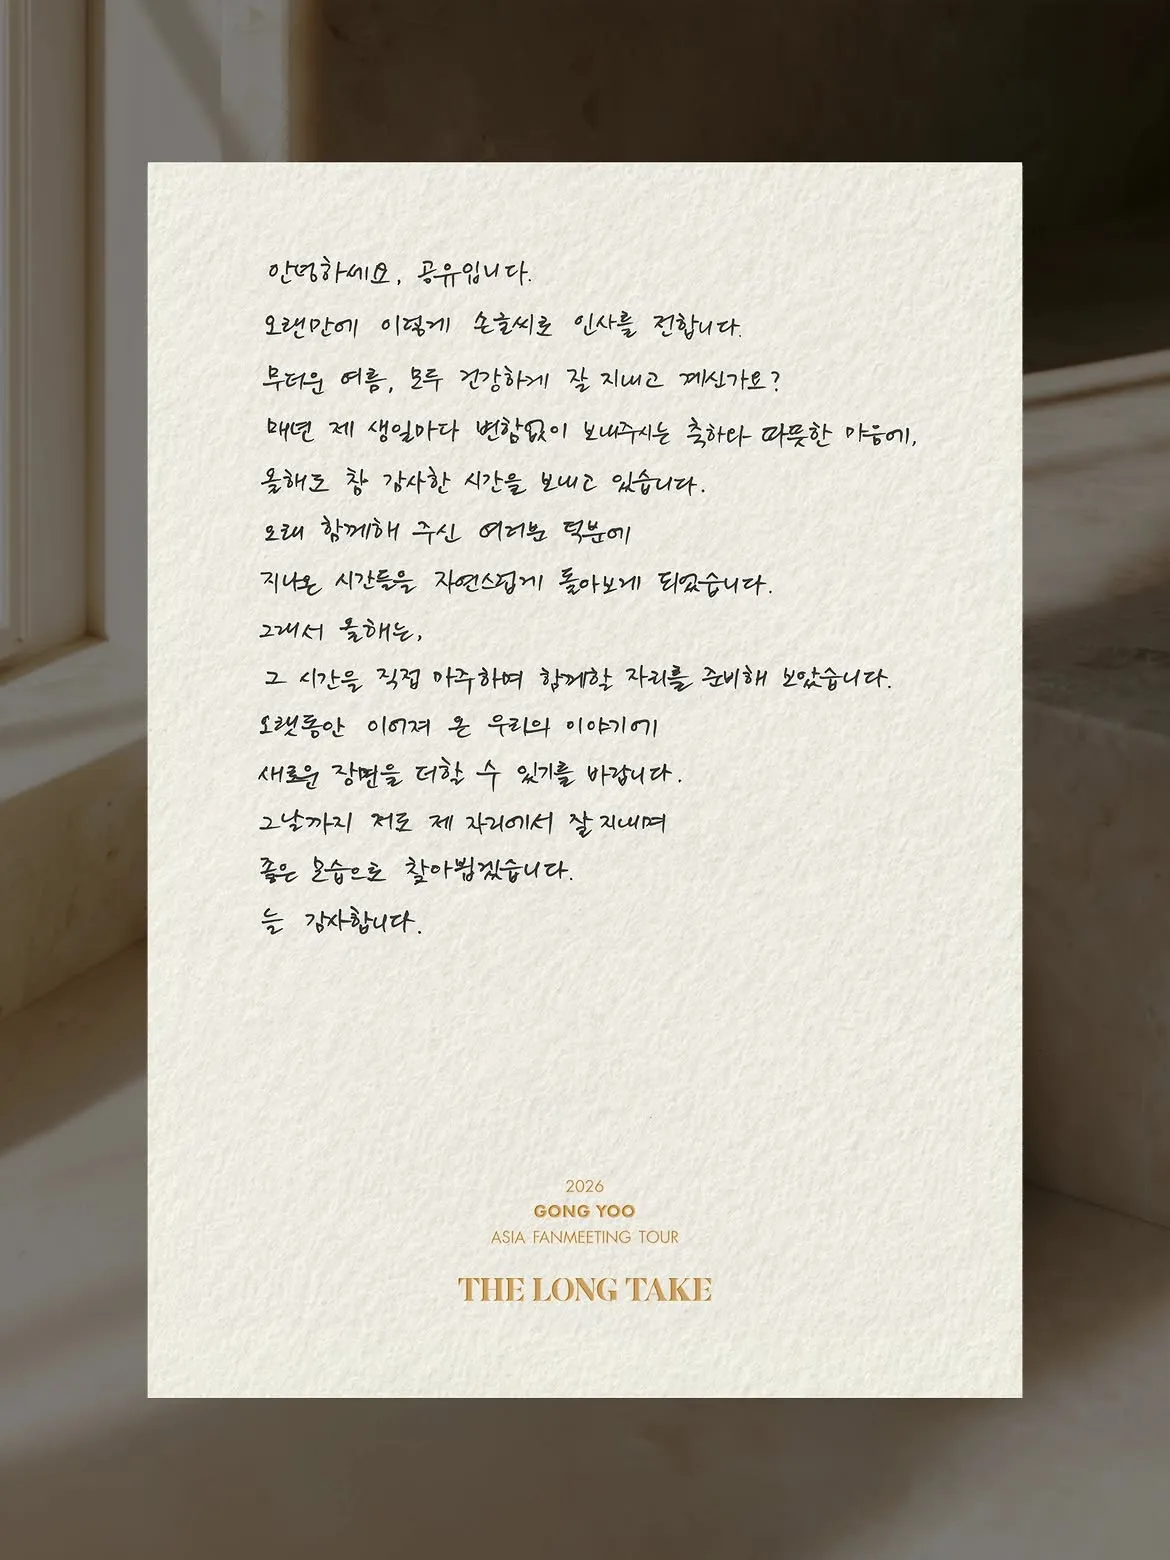 안녕하세요, 공유입니다.
오랜만에 이렇게 손글씨로 인사를 전합니다.
무더운 여름, 모두 건강하게 잘 지내고 계신가요?
매년 제 생일마다 변함없이 보내주시는 축하와 따뜻한 마음에,
올해도 참 감사한 시간을 보내고 있습니다.
오래 함께해 주신 여러분 덕분에
지나온 시간들을 자연스럽게 돌아보게 되었습니다.
그래서 올해는,
그 시간을 직접 마주하며 함께할 자리를 준비해 보았습니다.
오랫동안 이어져 온 우리의 이야기에
새로운 장면을 더할 수 있기를 바랍니다.
그날까지 저도 제 자리에서 잘 지내며
좋은 모습으로 찾아뵙겠습니다.
늘 감사합니다.
2026
GONG YOO
ASIA FANMEETING TOUR
THE LONG TAKE